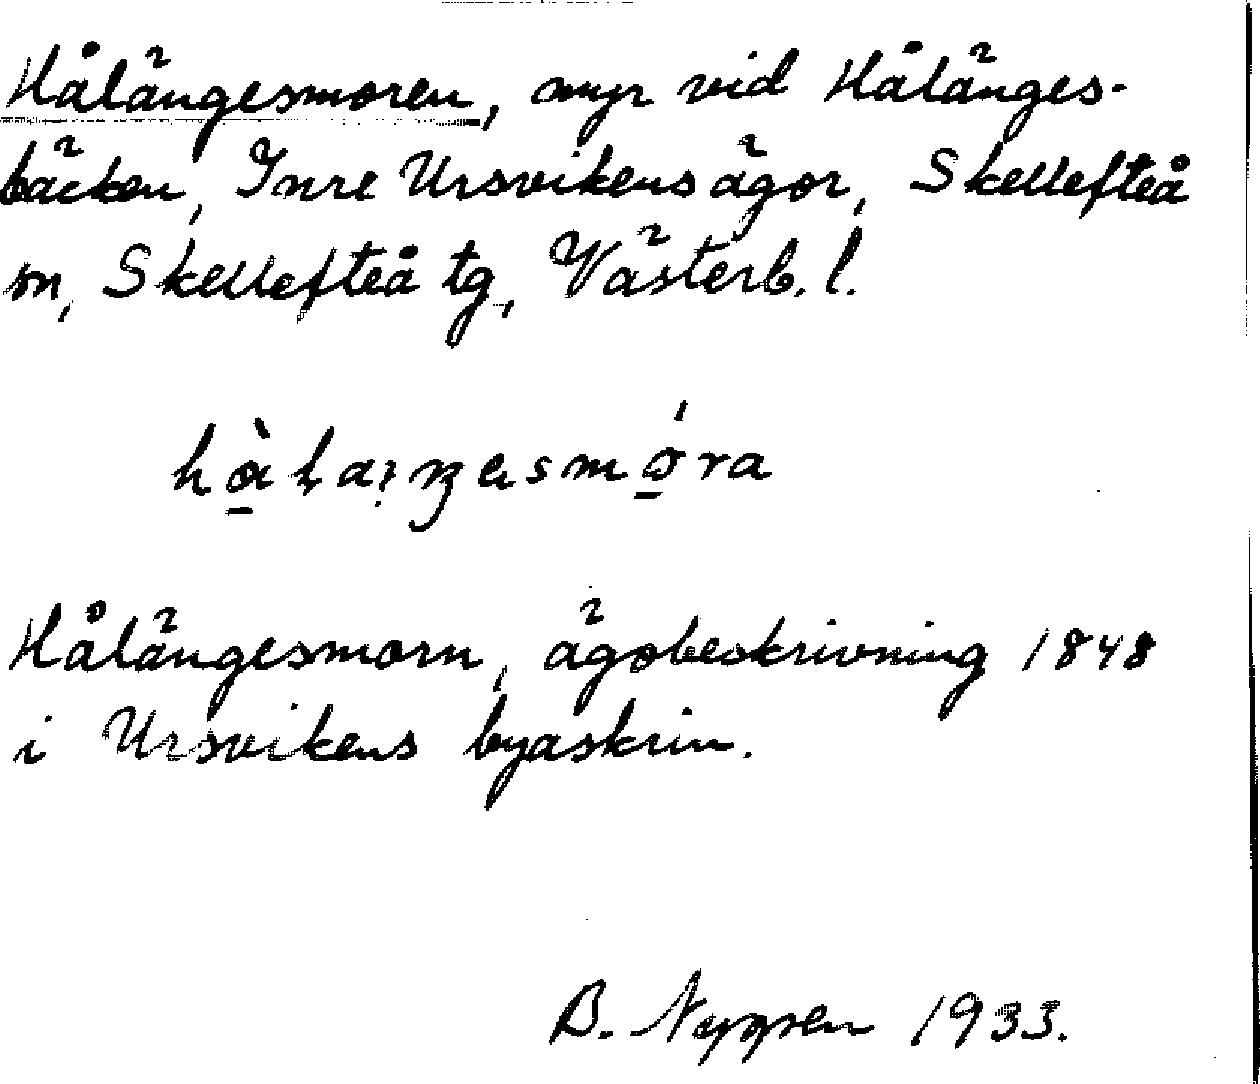 Hålängesmoren, myr vid Hålänges-
bäcken, Inre Ursvikens ägor, Skellefteå
sn, Skellefteå tg, Västerb. l.
Hålängesmorn, ägobeskrivning 1848
i Ursvikens byaskrin.
B. 1933.